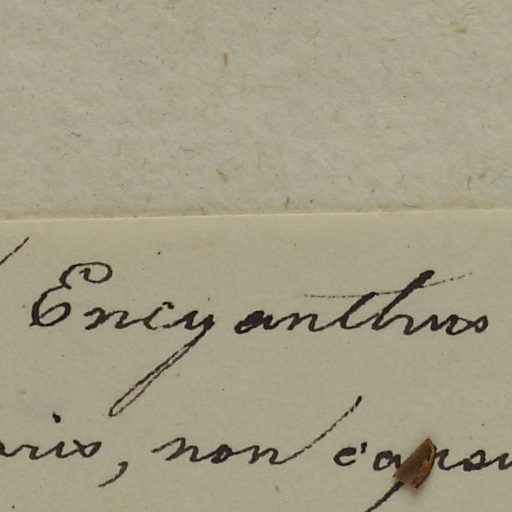 Encyanthus
oris, non capsu